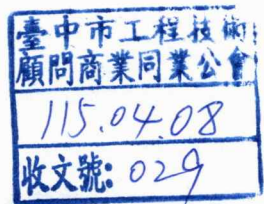 臺中市工程技術
顧問商業同業公會
115.04.08
收文號:029